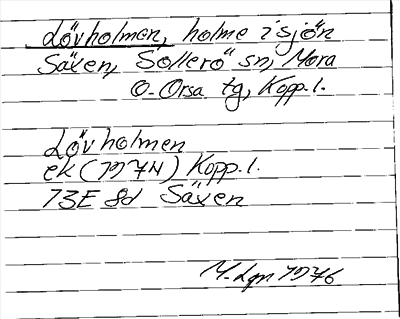 Lövholmen, holme i sjön
Säxen, Sollerö sn, Mora
o. Orsa tg, Kopp. l.
Lövholmen
ek (1974) Kopp. l.
13E 8d Säxen
1976